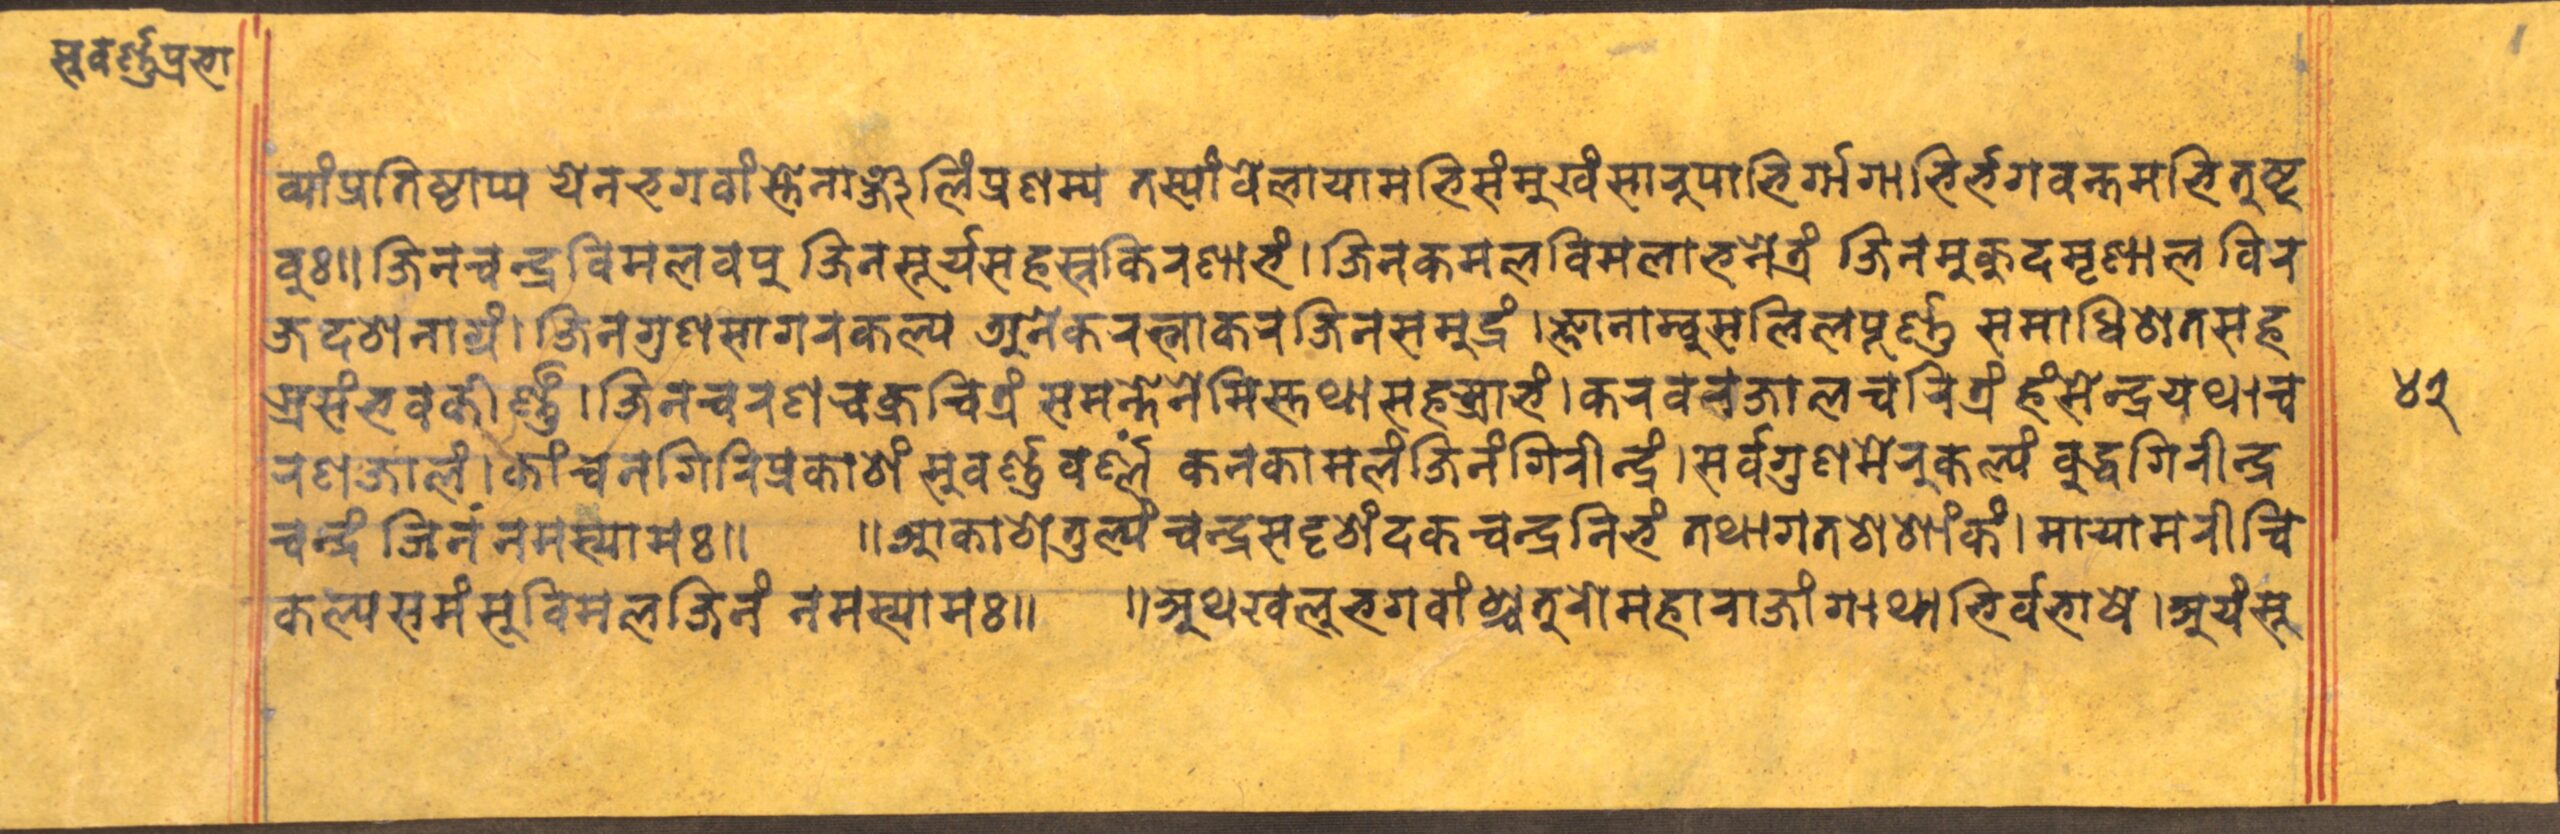 सुवर्ण्णप्रभा
व्यांप्रतिष्ठाप्य येनभगवांस्तेनाञ्जलिंप्रणम्य तस्यांवेलायामभिसंमुखंसारुपाभिर्गाथाभिर्भगवन्तमभितुष्टु
वुः॥ जिनचन्द्रविमलवपु जिनसूर्यसहस्रकिरणाभं। जिनकमलविमलाभनेत्रं जिनमुकुदमृणाल विर
जदशनाग्रं। जिनगुणसागरकल्प अनेकरत्नाकरजिनसमुद्रं। ज्ञानाम्बुसलिलपूर्ण्ण समाधिशतसह
स्रसंभवकीर्ण्णं। जिनचरणचक्रचित्रं समन्तेनेमिस्तथासहस्रारं। करचरनजालचरित्रं हंसेन्द्रयथाच
रणजालं। कांचनगिरिप्रकाशं सुवर्ण्णवर्ण्णं कनकामलंजिनंगिरीन्द्रं। सर्वगुणमेरुकल्पं बुद्धगिरीन्द्र
चन्द्रं जिनं नमस्यामः॥ ॥आकाशतुल्यं चन्द्रसदृशंदकचन्द्रनिभं तथागतशशांकं। मायामरीचि
कल्पसमंसुविमलजिनं नमस्यामः॥ ॥अथखलुभगवांश्चतुरोमहाराजांगाथाभिर्वभाषे। अयंसु
४२